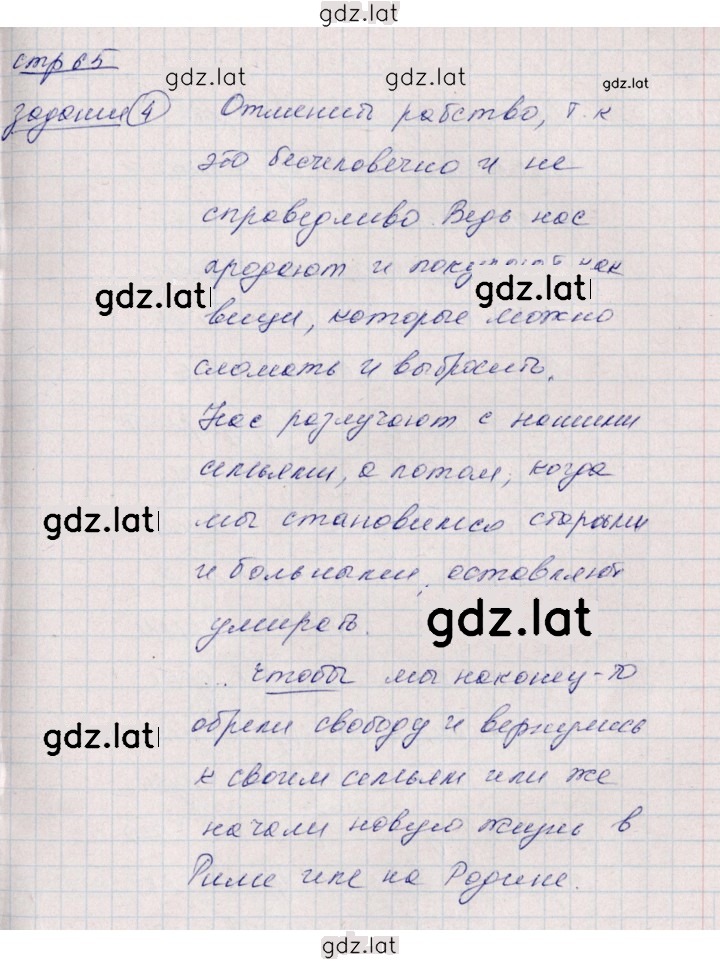 gdz.lat
стр 65
gdz.lat gdz.lat gdz.lat
задание 4 Отменить рабство, т.к
это бесчеловечно и не
справедливо. Ведь нас
продают и покупают как
gdz.lat gdz.lat
вещи, которые можно
сломать и выбросить.
Нас разлучают с нашими
семьями, а потом, когда
gdz.lat мы становимся старыми
и больными, оставляют
gdz.lat
умирать.
... Чтобы мы наконец-то
gdz.lat обрели свободу и вернулись
к своим семьям или же
начали новую жизнь в
Риме или на Родине.
gdz.lat